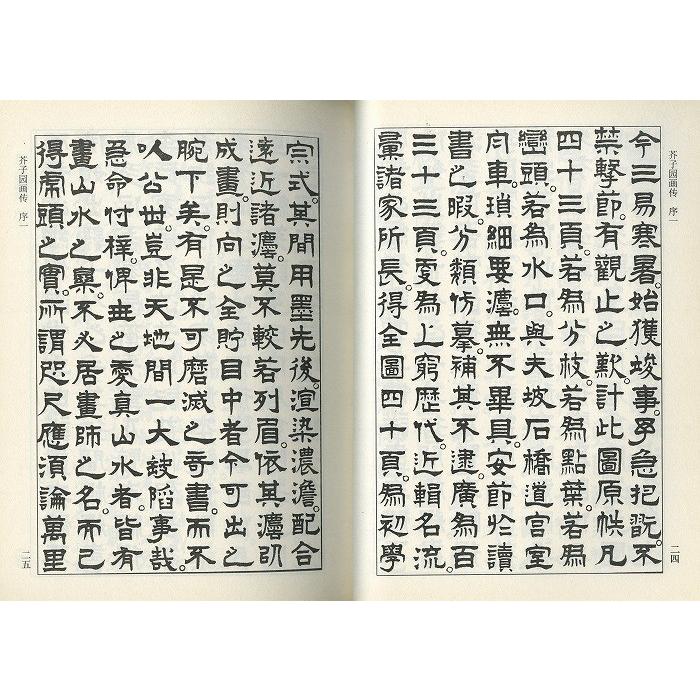 芥子园画传 序一
今三易寒暑。始獲竣事。予急把翫。不
禁擊節。有觀止之歎。計此圖原帙凡
四十三頁。若為分枝。若為點葉。若為
巒頭。若為水口。與夫坡石橋道宮室
舟車。瑣細要灋。無不畢具。安節於讀
書之暇。分類仿摹。補其不逮。廣為百
三十三頁。更為上窮歷代。近輯名流。
彙諸家所長。得全圖四十頁。為初學
二四
宗式。其間用墨先後。渲染濃澹。配合
遠近諸灋。莫不較若列眉。依其灋以
成畫。則向之全貯目中者。今可出之
腕下矣。有是不可磨滅之奇書。而不
以公世。豈非天地間一大缺陷事哉。
急命付梓。俾世之愛真山水者。皆有
畫山水之樂。不必居畫師之名。而已
得虎頭之實。所謂咫尺應須論萬里
芥子园画传 序一
二五